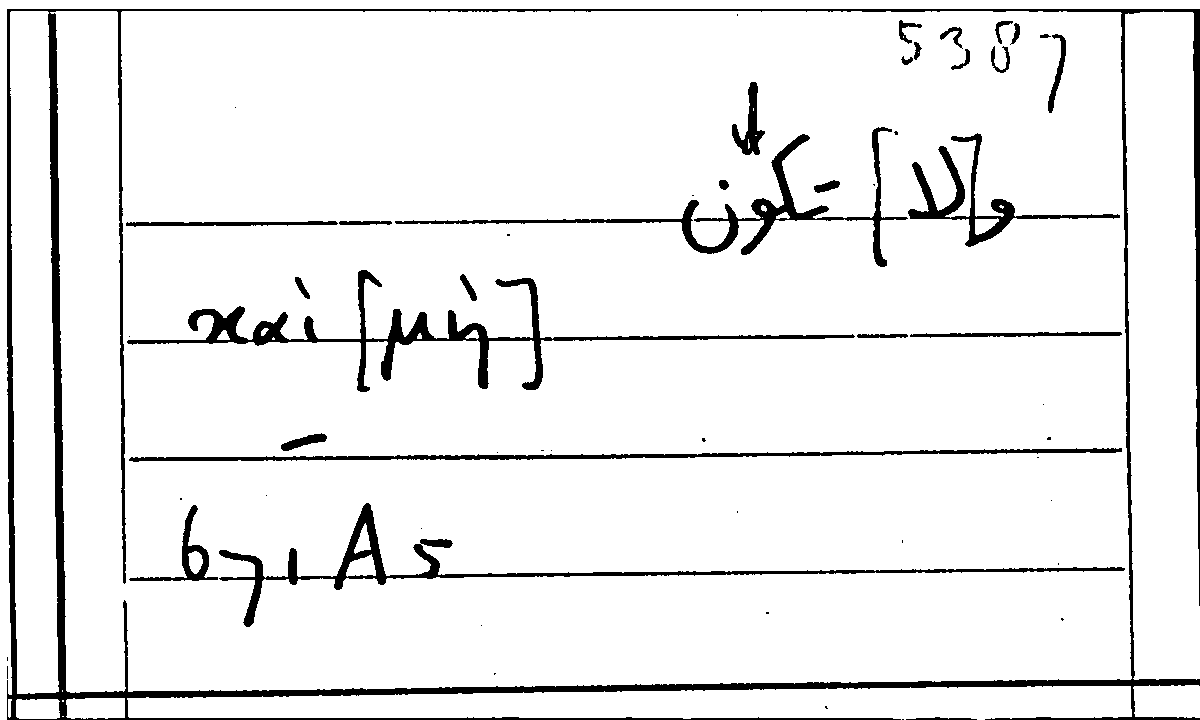 5387
↓
و[لا] تكون
καὶ [μὴ]
–
671 A 5